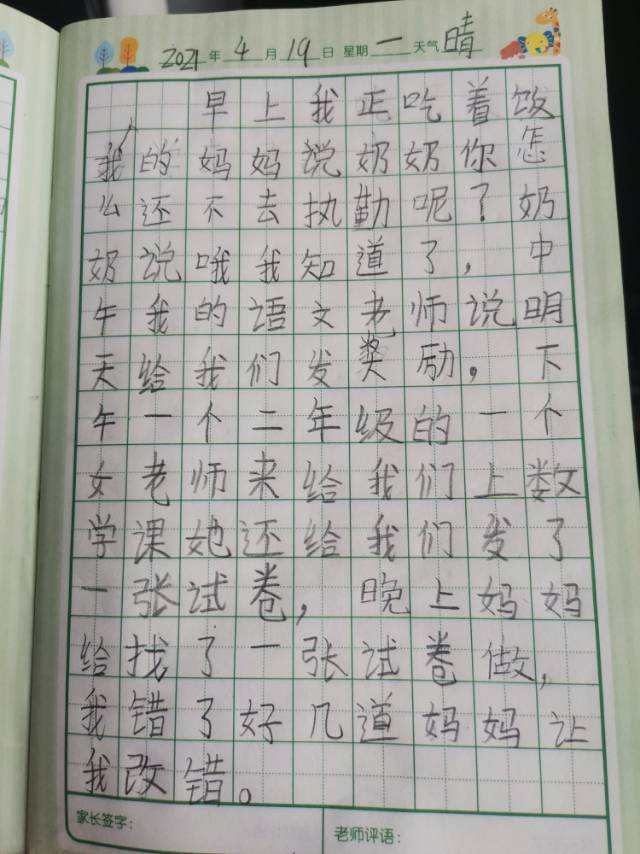 2021年4月19日 星期一 天气晴
早上我正吃着饭
我的妈妈说奶奶你怎
么还不去执勤呢？奶
奶说哦我知道了，中
午我的语文老师说明
天给我们发奖励，下
午一个二年级的一个
女老师来给我们上数
学课她还给我们发了
一张试卷，晚上妈妈
给找了一张试卷做，
我错了好几道妈妈让
我改错。
家长签字：
老师评语：